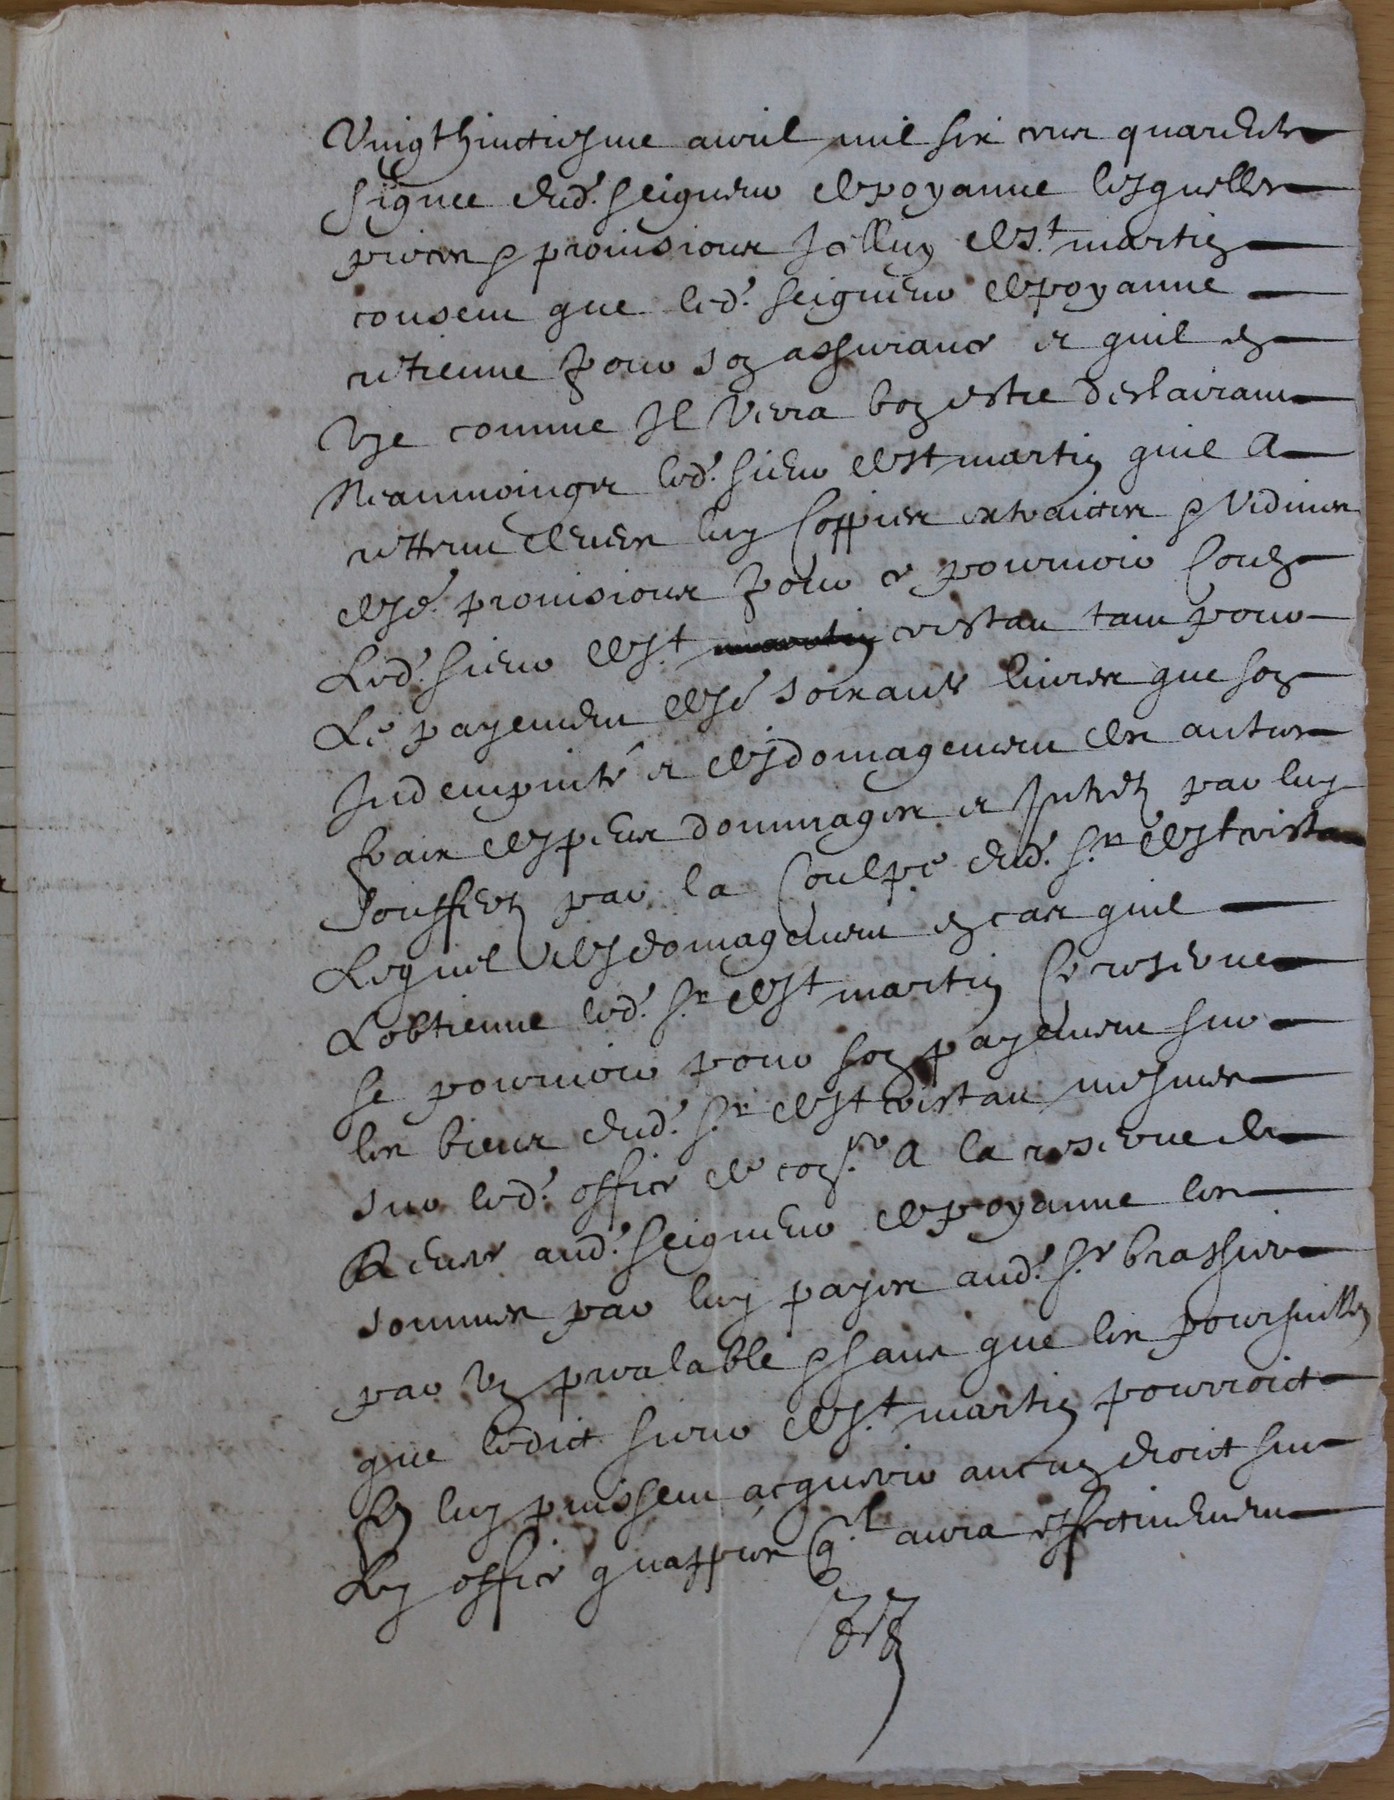 Vingthuictiesme avril mil six cens quarente
signée dud. seigneur de poyanne lesquelles
pieces & provisions Icelluy de St martin
consent que led. seigneur de poyanne
retienne pour son assurance et quil en
Use comme Il verra bon estre desclairant
Neanmoings led. sieur de St martin quil a
retteneu devers luy Coppies extraictes & Vidimés
desd. provisions pour ce pourvoir Contre
Led. sieur de St cristau tant pour
Le payement desd. soixante livres que son
Indempnité et desdomagement des autres
frais despens dommages et Intherestz par luy
Soufferts par la Coulpe dud. sr de St cristau
Lequel desdomagement en cas quil
Lobtienne led. sr de St martin Ce reserve
se pourvoir pour son payement sur
les biens dud. sr de St cristau mesmes
sur led. office de conser a la reserve de
au d. seigneur de poyanne les
sommes par luy payées aud. sr brassier
par Un prealable & sans que les poursuittes
que ledict sieur de St martin pourroict
luy puissent acquerir aucun droict sur
Ley office quappres quil aura effectivement